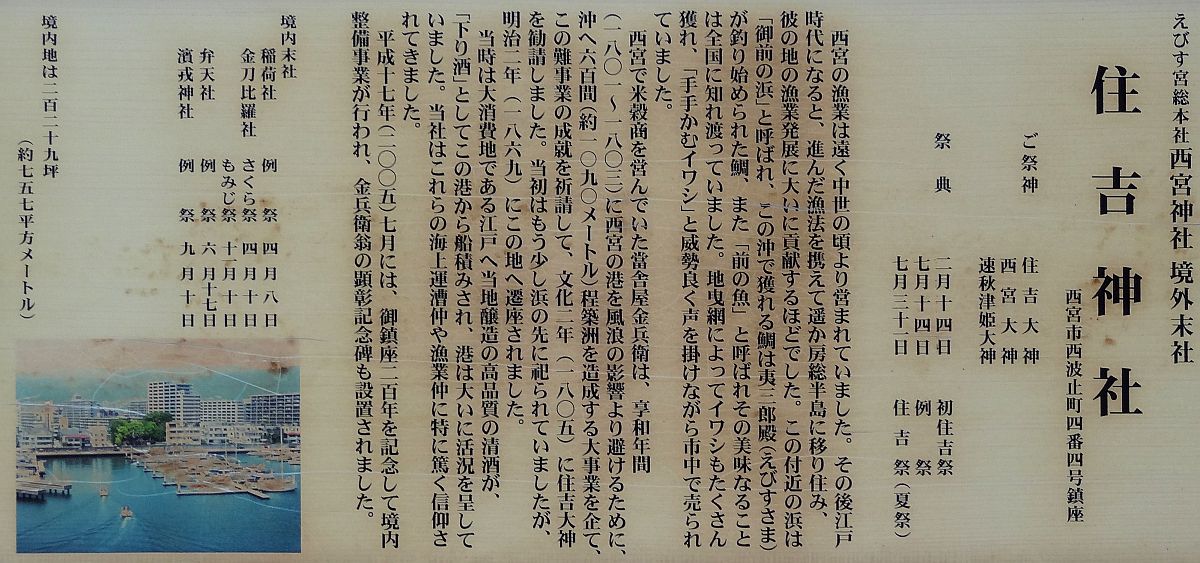 えびす宮総本社 西宮神社 境外末社
住吉神社
西宮市西波止町四番四号鎮座
ご祭神 住吉大神
西宮大神
速秋津姫大神
祭典 二月十四日 初住吉祭
七月十四日 例祭
七月三十一日 住吉祭(夏祭)
西宮の漁業は遠く中世の頃より営まれていました。その後江戸
時代になると、進んだ漁法を携えて遥か房総半島に移り住み、
彼の地の漁業発展に大いに貢献するほどでした。この付近の浜は
「御前の浜」と呼ばれ、この沖で獲れる鯛は夷三郎殿(えびすさま)
が釣り始められた鯛、また「前の魚」と呼ばれその美味なること
は全国に知れ渡っていました。地曳網によってイワシもたくさん
獲れ、「手手かむイワシ」と威勢良く声を掛けながら市中で売られ
ていました。
西宮で米穀商を営んでいた當舎屋金兵衛は、享和年間
(一八〇一～一八〇三)に西宮の港を風浪の影響より避けるために、
沖へ六百間(約一〇九〇メートル)程築洲を造成する大事業を企て、
この難事業の成就を祈請して、文化二年(一八〇五)に住吉大神
を勧請しました。当初はもう少し浜の先に祀られていましたが、
明治二年(一八六九)にこの地へ遷座されました。
当時は大消費地である江戸へ当地醸造の高品質の清酒が、
「下り酒」としてこの港から船積みされ、港は大いに活況を呈して
いました。当社はこれらの海上運漕仲や漁業仲に特に篤く信仰さ
れてきました。
平成十七年(二〇〇五)七月には、御鎮座二百年を記念して境内
整備事業が行われ、金兵衛翁の顕彰記念碑も設置されました。
境内末社
稲荷社 例祭 四月八日
金刀比羅社 さくら祭 四月十日
もみじ祭 十一月十日
弁天社 例祭 六月十七日
濱戎神社 例祭 九月十日
境内地は二百二十九坪
(約七五七平方メートル)